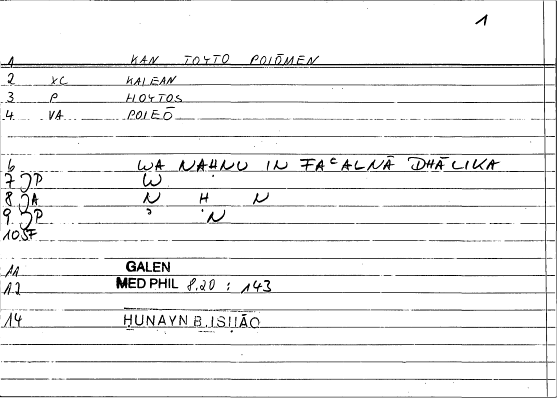 1
1 KAN TOYTO POIŌMEN
2 XC KALEAN
3 P HOYTOS
4 VA POIEŌ
6 WA NAḤNU IN FAᶜALNĀ DHĀLIKA
7 JP W
8 JA N Ḥ N
9 JP ʾ N
10 SF
11 GALEN
12 MED PHIL 8.20 : 143
14 ḤUNAYN B. ISḤĀQ